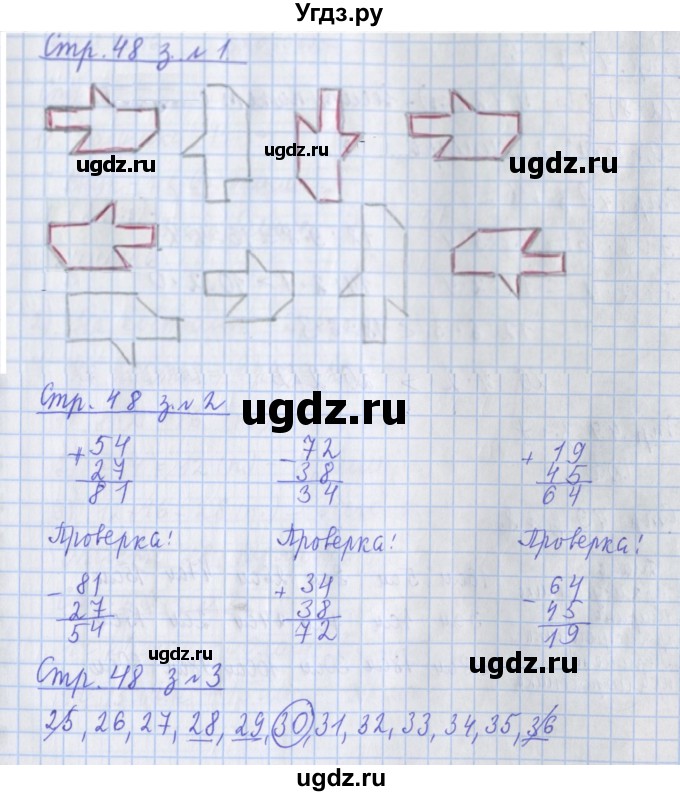 Угдз.ру
Стр. 48 з. № 1.
ugdz.ru ugdz.ru ugdz.ru
Стр. 48 з. № 2
ugdz.ru
+ 54 - 72 + 19
27 38 45
81 34 64
Проверка! Проверка! Проверка!
- 81 + 34 - 64
27 38 45
54 72 19
ugdz.ru ugdz.ru
Стр. 48 з № 3
25, 26, 27, 28, 29, 30, 31, 32, 33, 34, 35, 36
ugdz.ru